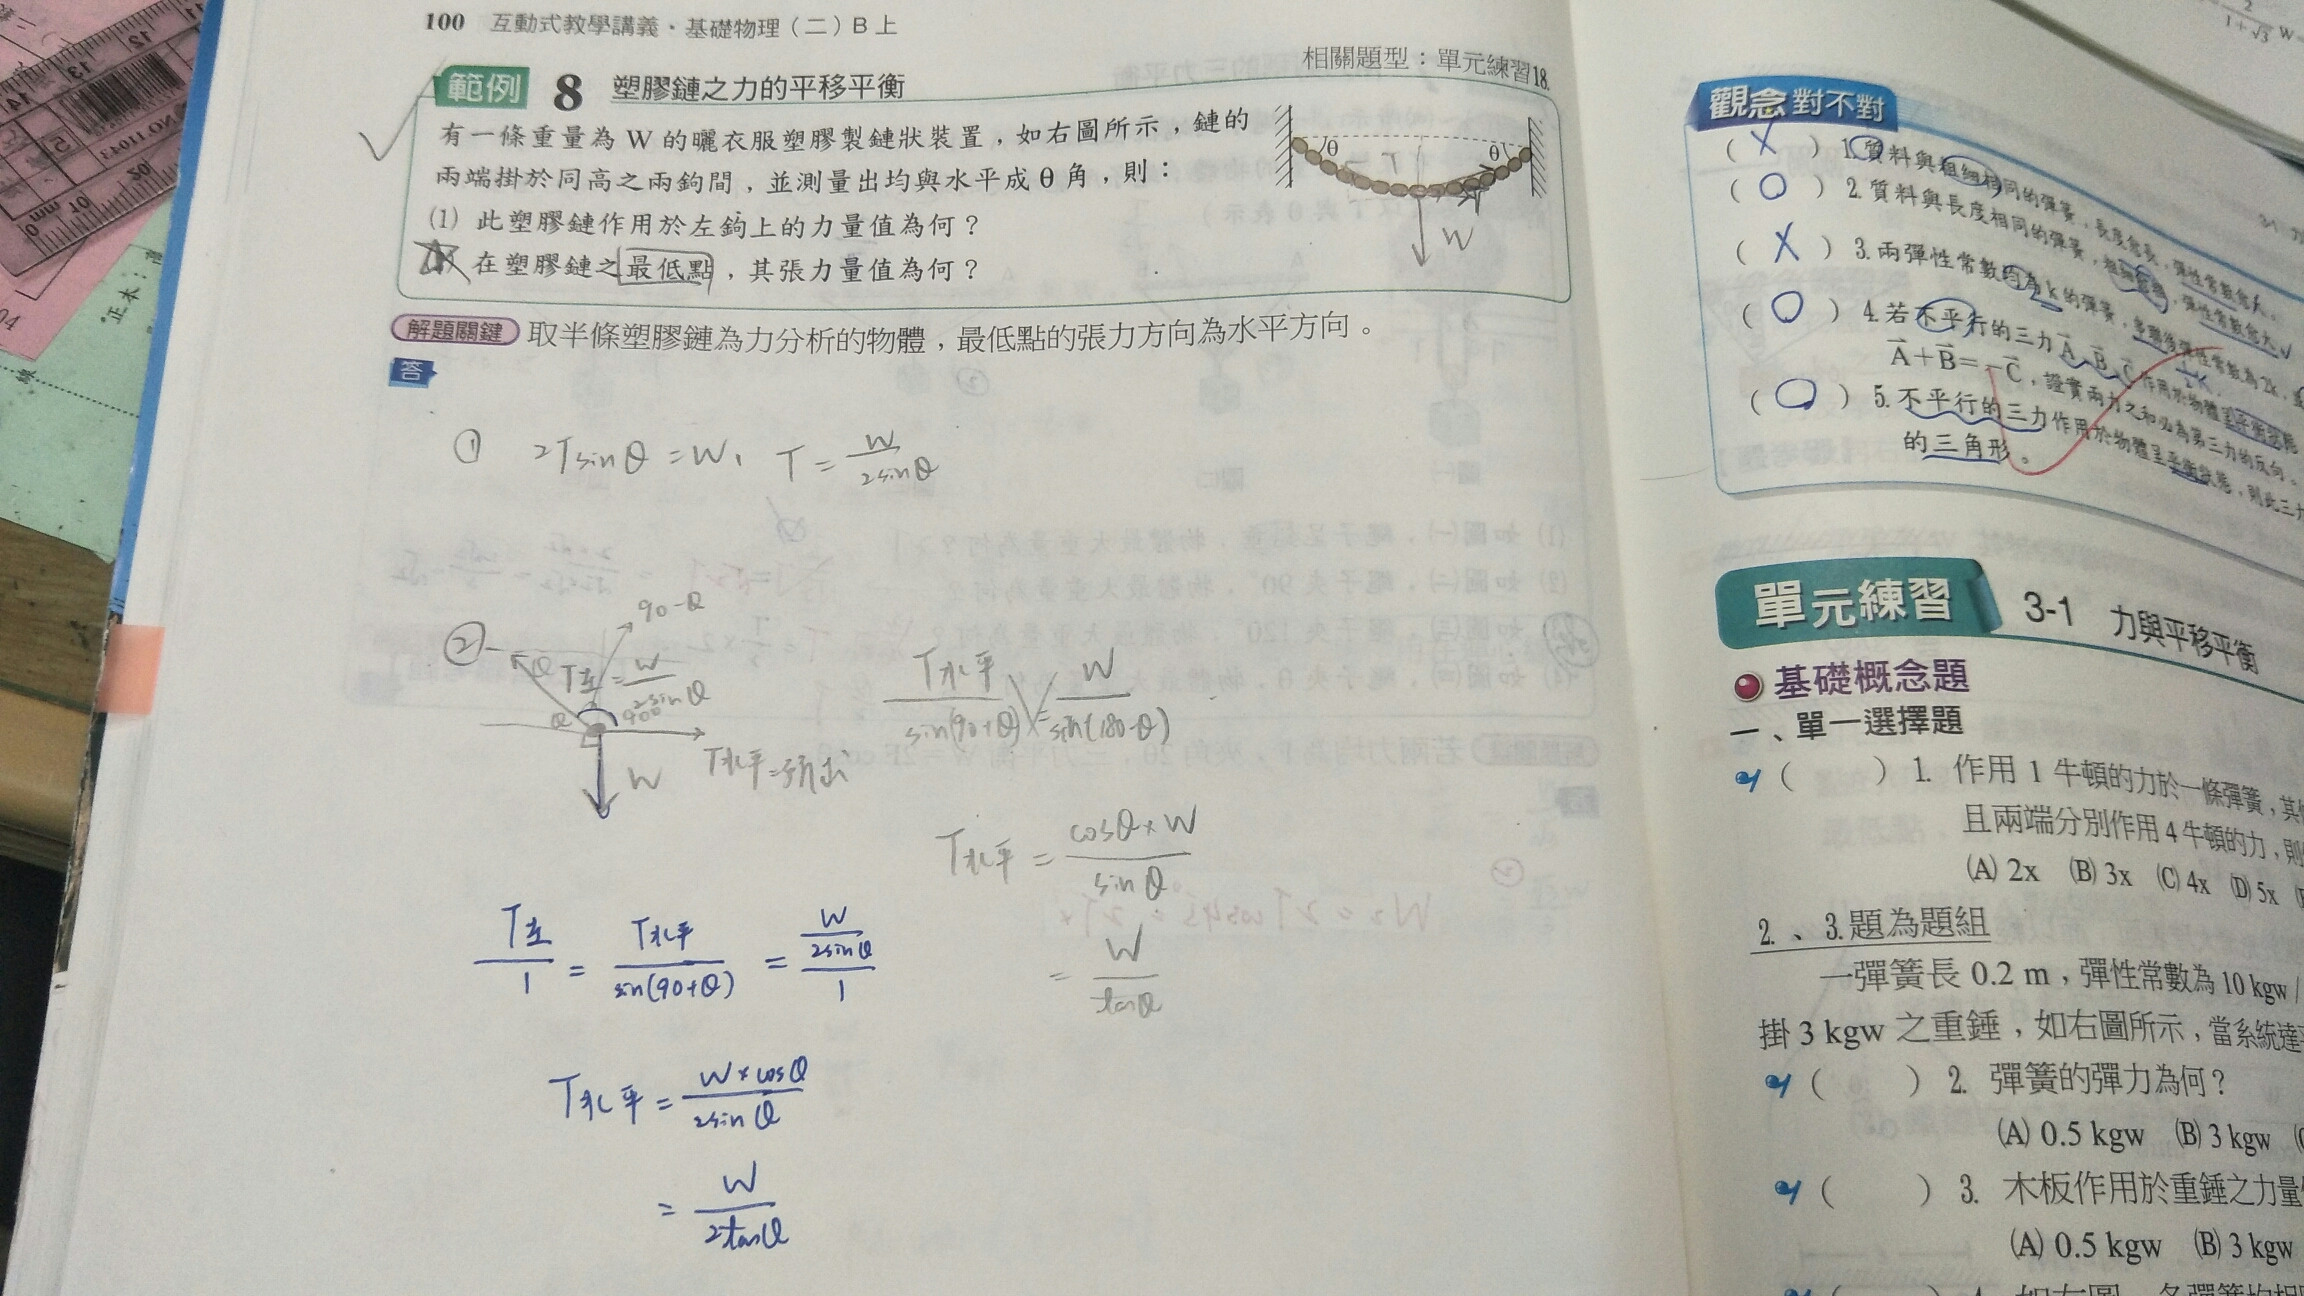 100 互動式教學講義・基礎物理(二)B上
相關題型:單元練習18.
範例 8 塑膠鏈之力的平移平衡
有一條重量為 W 的曬衣服塑膠製鏈狀裝置,如右圖所示,鏈的
兩端掛於同高之兩鉤間,並測量出均與水平成 θ 角,則:
(1) 此塑膠鏈作用於左鉤上的力量值為何?
在塑膠鏈之最低點,其張力量值為何?
θ θ
T
W
解題關鍵 取半條塑膠鏈為力分析的物體,最低點的張力方向為水平方向。
答
① 2Tsinθ=W, T=W/2sinθ
② 90-θ
θ T左=W/2sinθ
θ 90°
W
T水平/sin(90+θ)=W/sin(180-θ)
T水平=cosθ×W/sinθ
=W/tanθ
T左/1=T水平/sin(90+θ)=W/2sinθ/1
T水平=W×cosθ/2sinθ
=W/2tanθ
2/1+√3 W
觀念對不對
(X)1.質料與粗細相同的彈簧,長度愈長,彈性常數愈大。
(O)2.質料與長度相同的彈簧,彈性常數愈大。
(X)3.兩彈性常數均為 k 的彈簧,串聯後彈性常數為 2k,
(O)4.若不平行的三力 A、B、C 作用於物體呈平衡狀態
A+B=-C,證實兩力之和必為第三力的反向。
(O)5.不平行的三力作用於物體呈平衡狀態,則此三力
的三角形。
單元練習 3-1 力與平移平衡
基礎概念題
一、單一選擇題
( )1. 作用 1 牛頓的力於一條彈簧,其
且兩端分別作用 4 牛頓的力,則
(A) 2x (B) 3x (C) 4x (D) 5x
2.、3.題為題組
一彈簧長 0.2 m,彈性常數為 10 kgw/
掛 3 kgw 之重錘,如右圖所示,當系統達
( )2. 彈簧的彈力為何?
(A) 0.5 kgw (B) 3 kgw
( )3. 木板作用於重錘之力量
(A) 0.5 kgw (B) 3 kgw